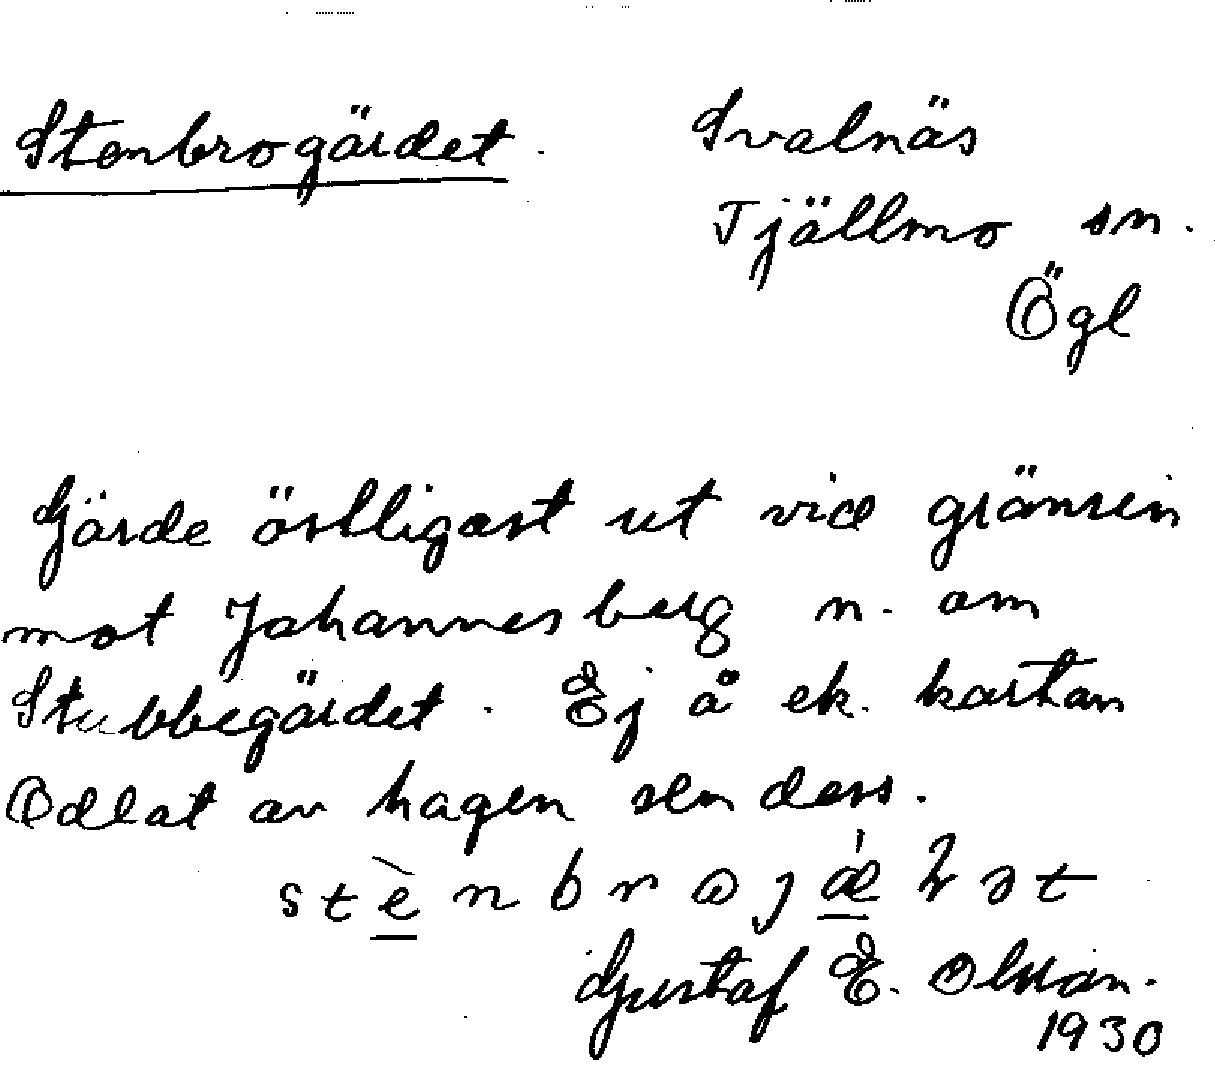 Stenbrogärdet.
Svalnäs
Tjällmo sn.
Ögl
Gärde östligast ut vid gränsen
mot Johannesberg n. om
Stubbegärdet. Ej å ek. kartan
Odlat av hagen sen dess.
Gustaf E. Olsson.
1930